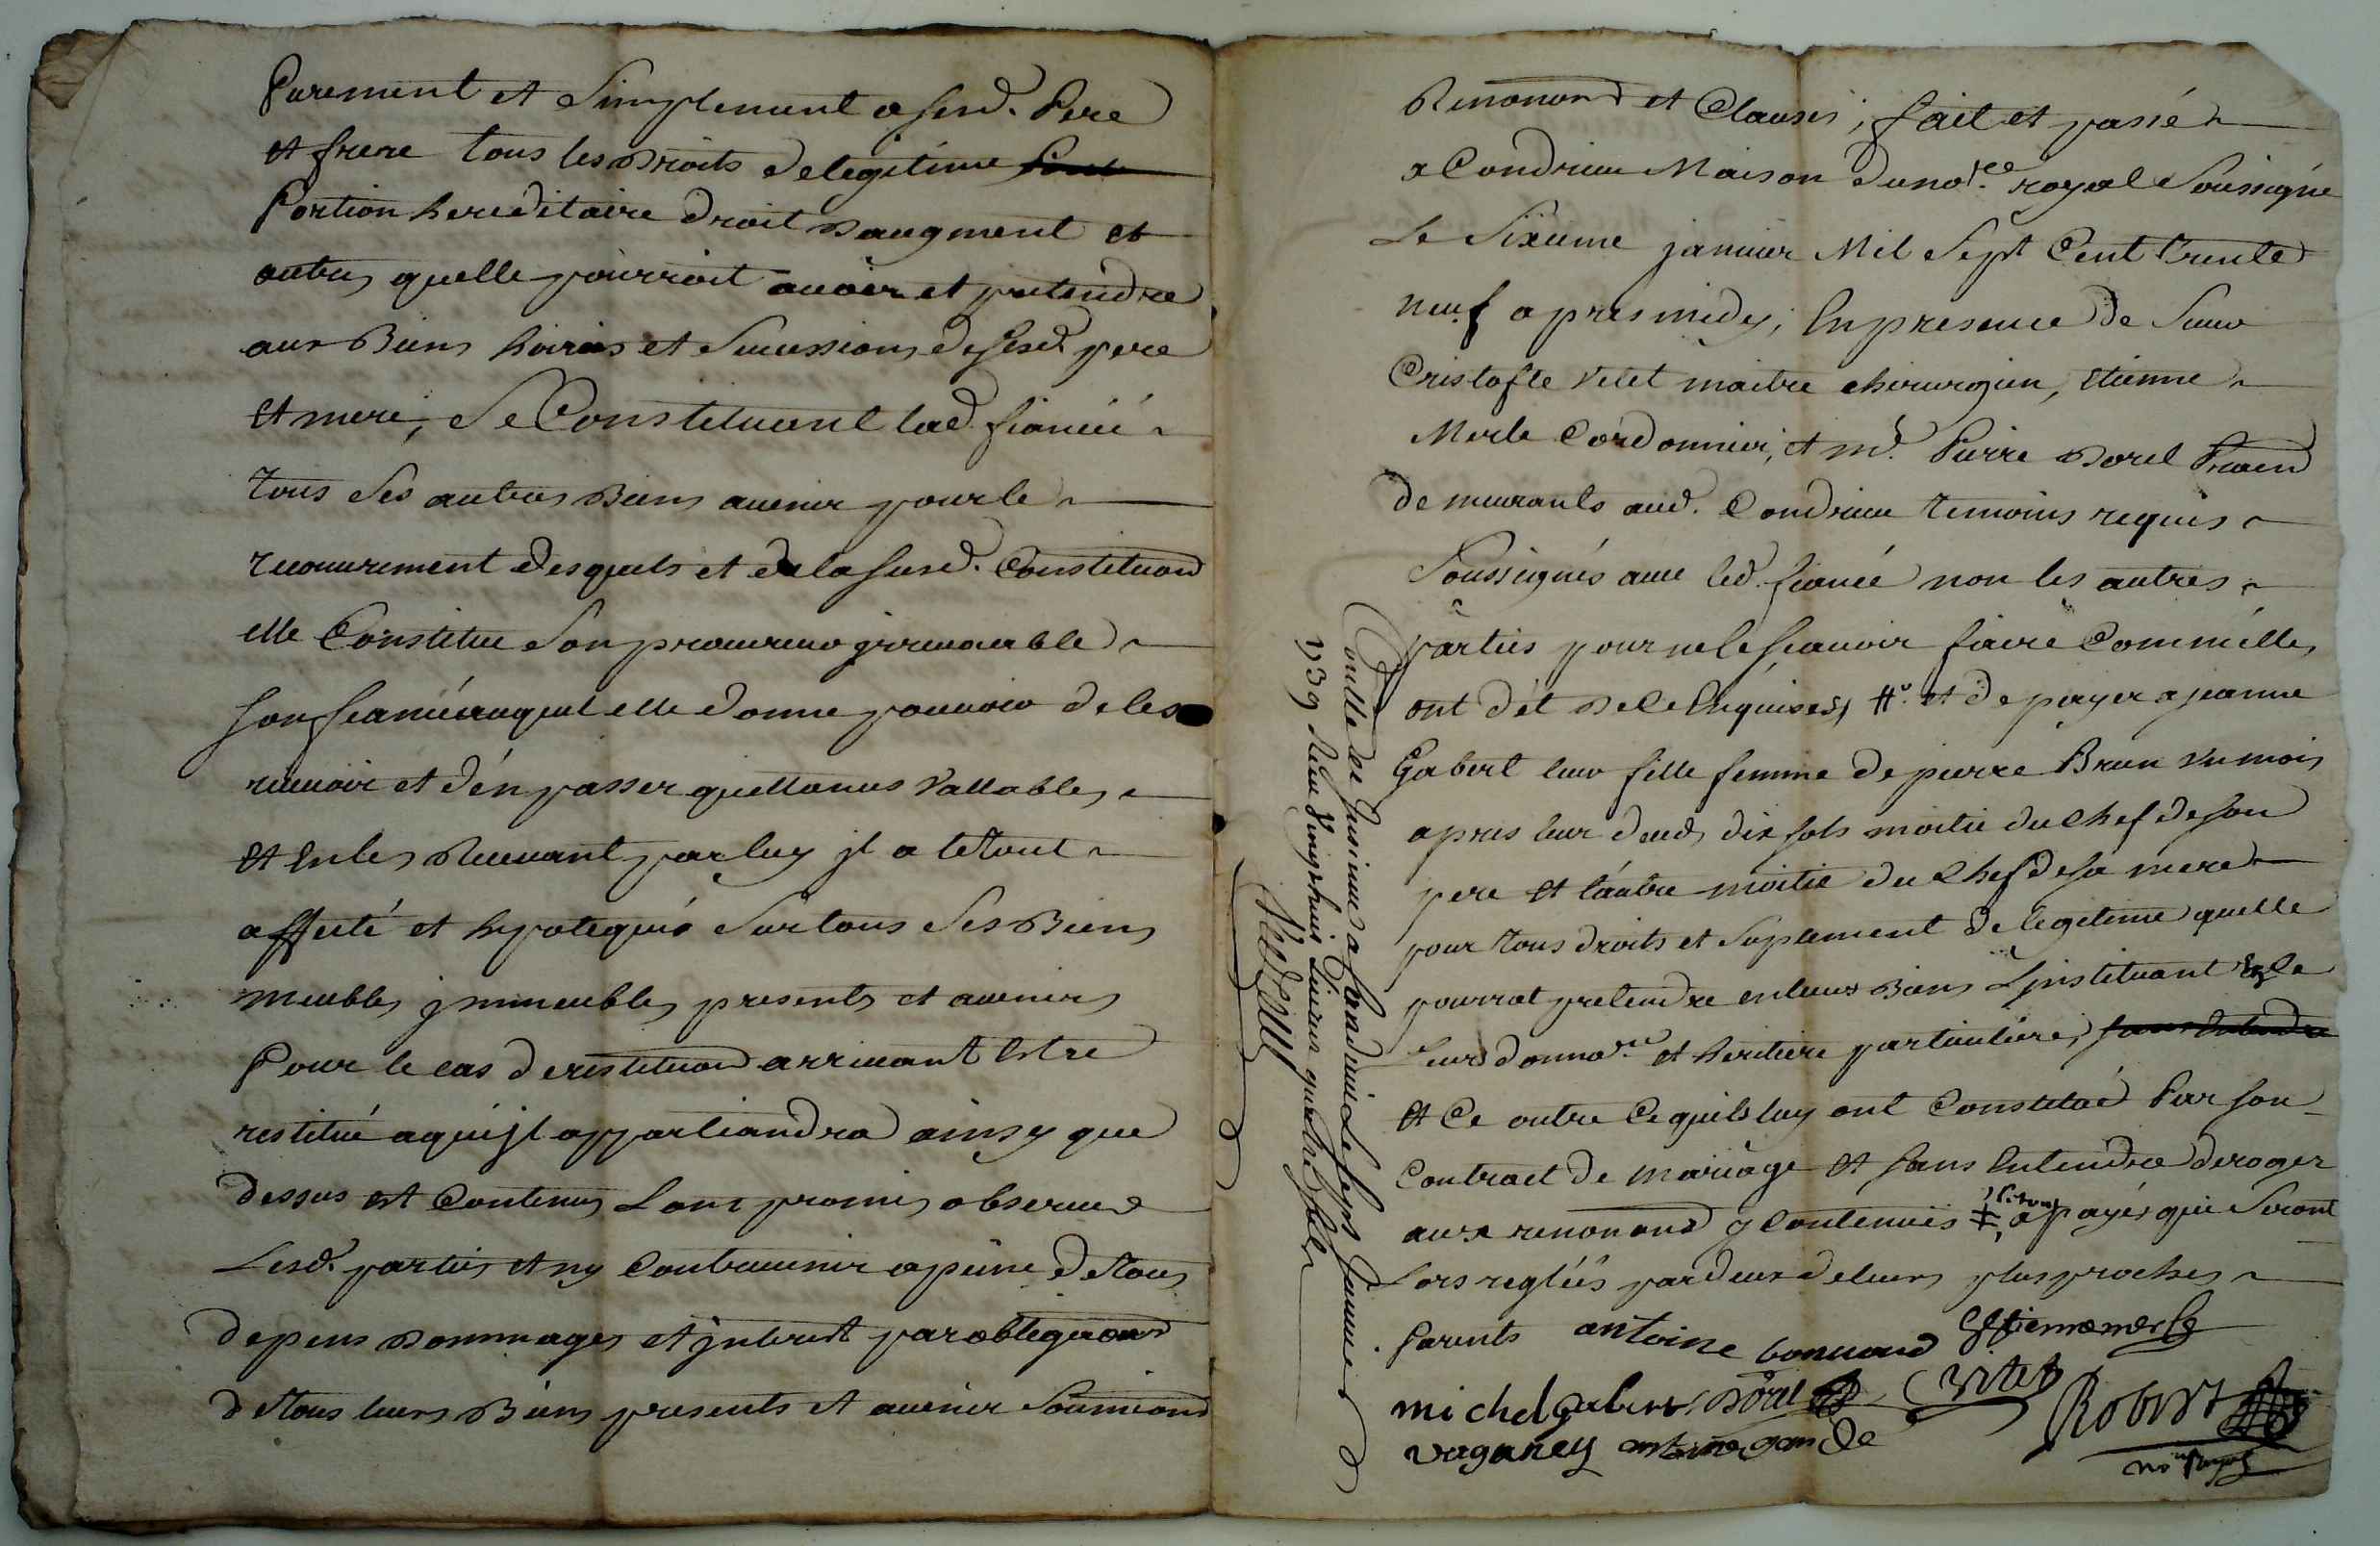 Purement et Simplement a sesd. Pere
et frere tous les Droits de legitime
Portion hereditaire droit Daugment et
autres quelle pourroit auoir et pretendre
aux Biens hoiries et Successions de sesd. pere
et mere, Se Constituant lad. fiancéé
tous Ses autres Biens auenir pour le
recouurement desquels et de la susd. Constituaõn
elle Constitue Son procureur jrreuocable
son fiancé auquel elle donne pouuoir de les
receuoir et d'en passer quittances Vallables
et En les Receuant par luy jl a le tout
affecté et hypotequé Sur tous Ses Biens
meubles jmmeubles presents et auenirs
Pour le cas de restituõn arriuant Estre
restitué a qui jl appartiandra ainsy que
dessus est Contenus L'ont promis obseruer
Lesd. parties et ny Contreuenir a peine de tous
depens Dommages et jnterest par obligaõns
de tous leurs Biens presents et auenir Soumiõns
Renonõns et Clauses; fait et passé
a Condrieu Maison du no.re royal Soussigné
Le Sixieme januier Mil Sept Cent trente
neuf apres midy, En presence de Sieur
Cristofle Vitet maitre chirurgien, Etienne
Merle Cordonnier, et m.e Pierre Dorel
demeurants aud. Condrieu temoins requis
Soussignés auec led. fiancé non les autres
parties pour ne le scauoir faire Comm'elles
ont d'ét De ce Enquises, # et de payer a jeanne
Gabert leur fille femme de pierre Brun Un mois
apres leur deces dix sols moitié du Chef de son
pere et l'autre moitie du Chef de sa mere
pour tous droits et Suplement de legitime quelle
pourrat pretendre en leurs Biens L'jnstituant
leur donna.re et heritiere particuliere, sans Entendre
et Ce outre Ce quils luy ont Constitué Par son
Contract de mariage et sans Entendre deroger
aux renonõns y Contenues # a payés qui Seront
Lors regléés par deux de leurs plus proches
Parents antoine bonnard Estienne merle
michel gabert Dorel Vitet Robert
vaganey antoine gande
no.re royal
Controllé et jnsinué a Condrieu Le Sept Januier
1739 Receu Vingt huit Liures quatre sols